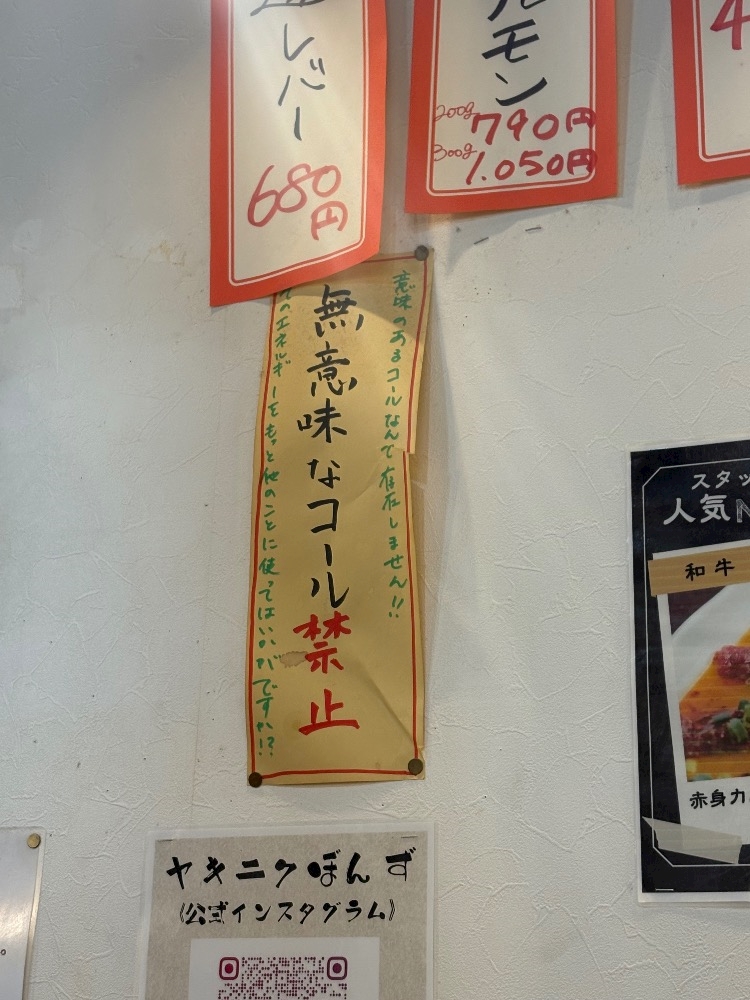 レバー
680
円
ルモン
200g 790円
300g 1.050円
4
意味のあるコールなんて存在しません!!
無意味なコール禁止
のエネルギーをもっと他のことに使ってはいかがですか!?
スタッ
人気N
和牛
赤身力
ヤキニクぼんず
《公式インスタグラム》